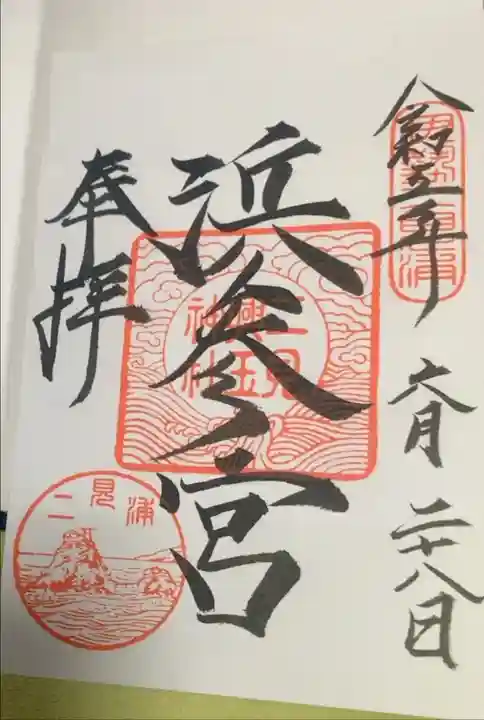 令和五年 六月 二十八日
浜参宮
二見
興玉
神社
奉拝
二見浦